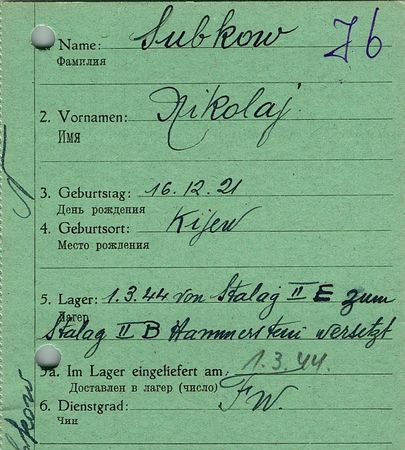 1. Name: Subkow
Фамилия
2. Vornamen: Nikolaj
Имя
3. Geburtstag: 16.12.21
День рождения
4. Geburtsort: Kijew
Место рождения
5. Lager: 1.3.44 von Stalag II E zum
Лагер
Stalag II B Hammerstein versetzt
5a. Im Lager eingeliefert am: 1.3.44.
Доставлен в лагер (число)
6. Dienstgrad: FW.
Чин